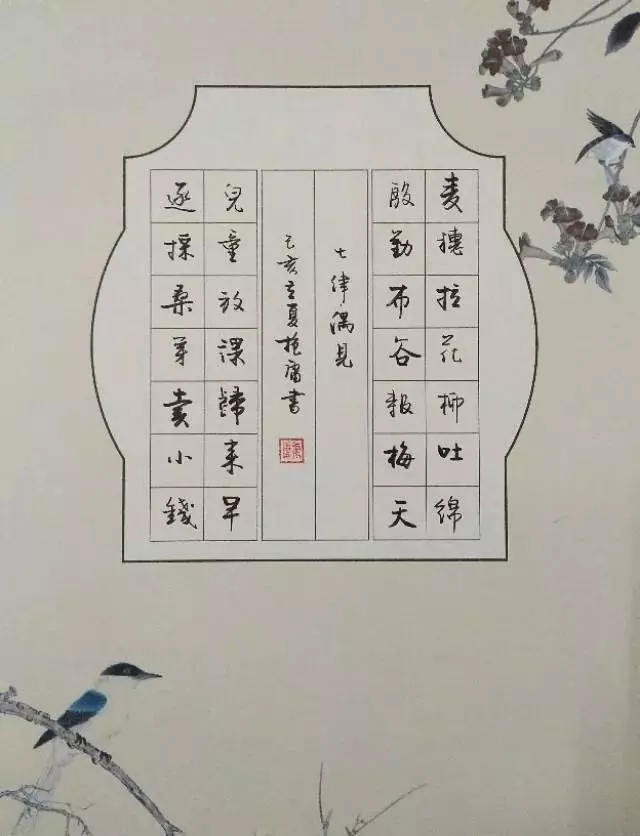 麦穗拉花柳吐绵
殷勤布谷報梅天
七律·偶見
己亥立夏 庸書
兒童放課歸来早
逐採桑芽賣小錢